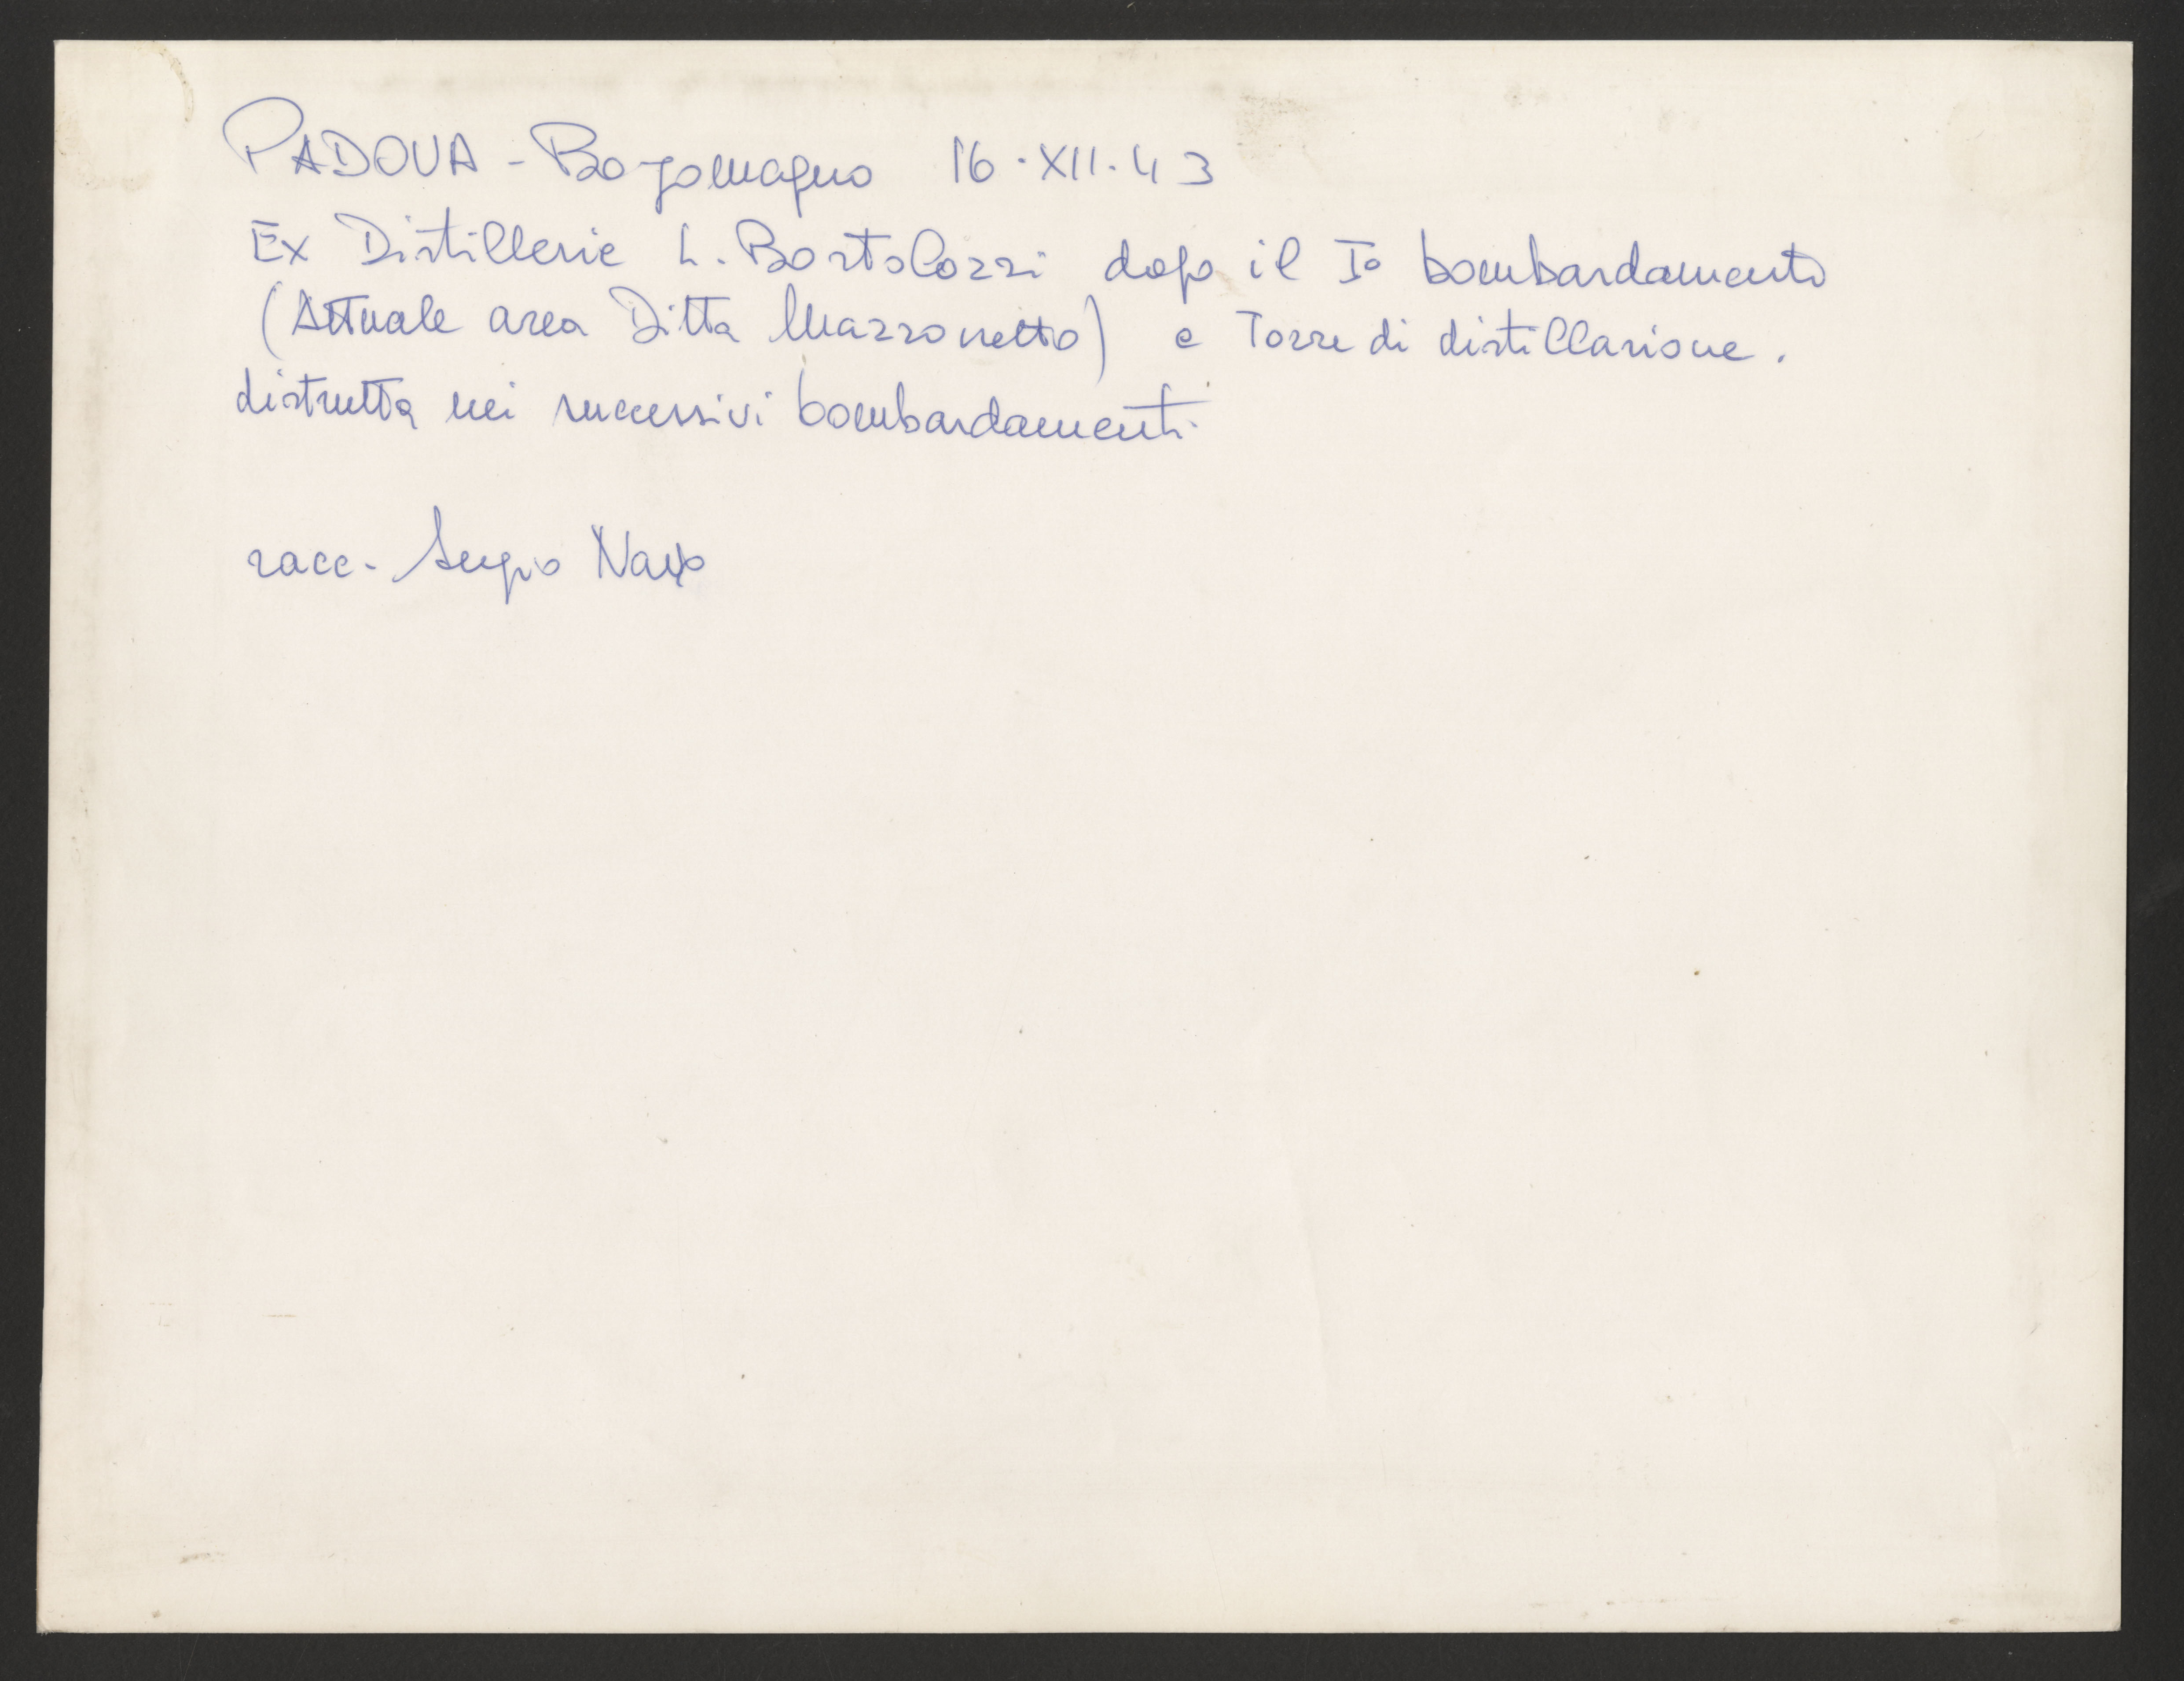 PADOVA - Borgomagno 16·XII·43
Ex Distillerie L. Bortolozzi dopo il Iº bombardamento
(Attuale area Ditta Mazzonetto) e Torre di distillazione.
distrutta nei successivi bombardamenti
racc. Sergio